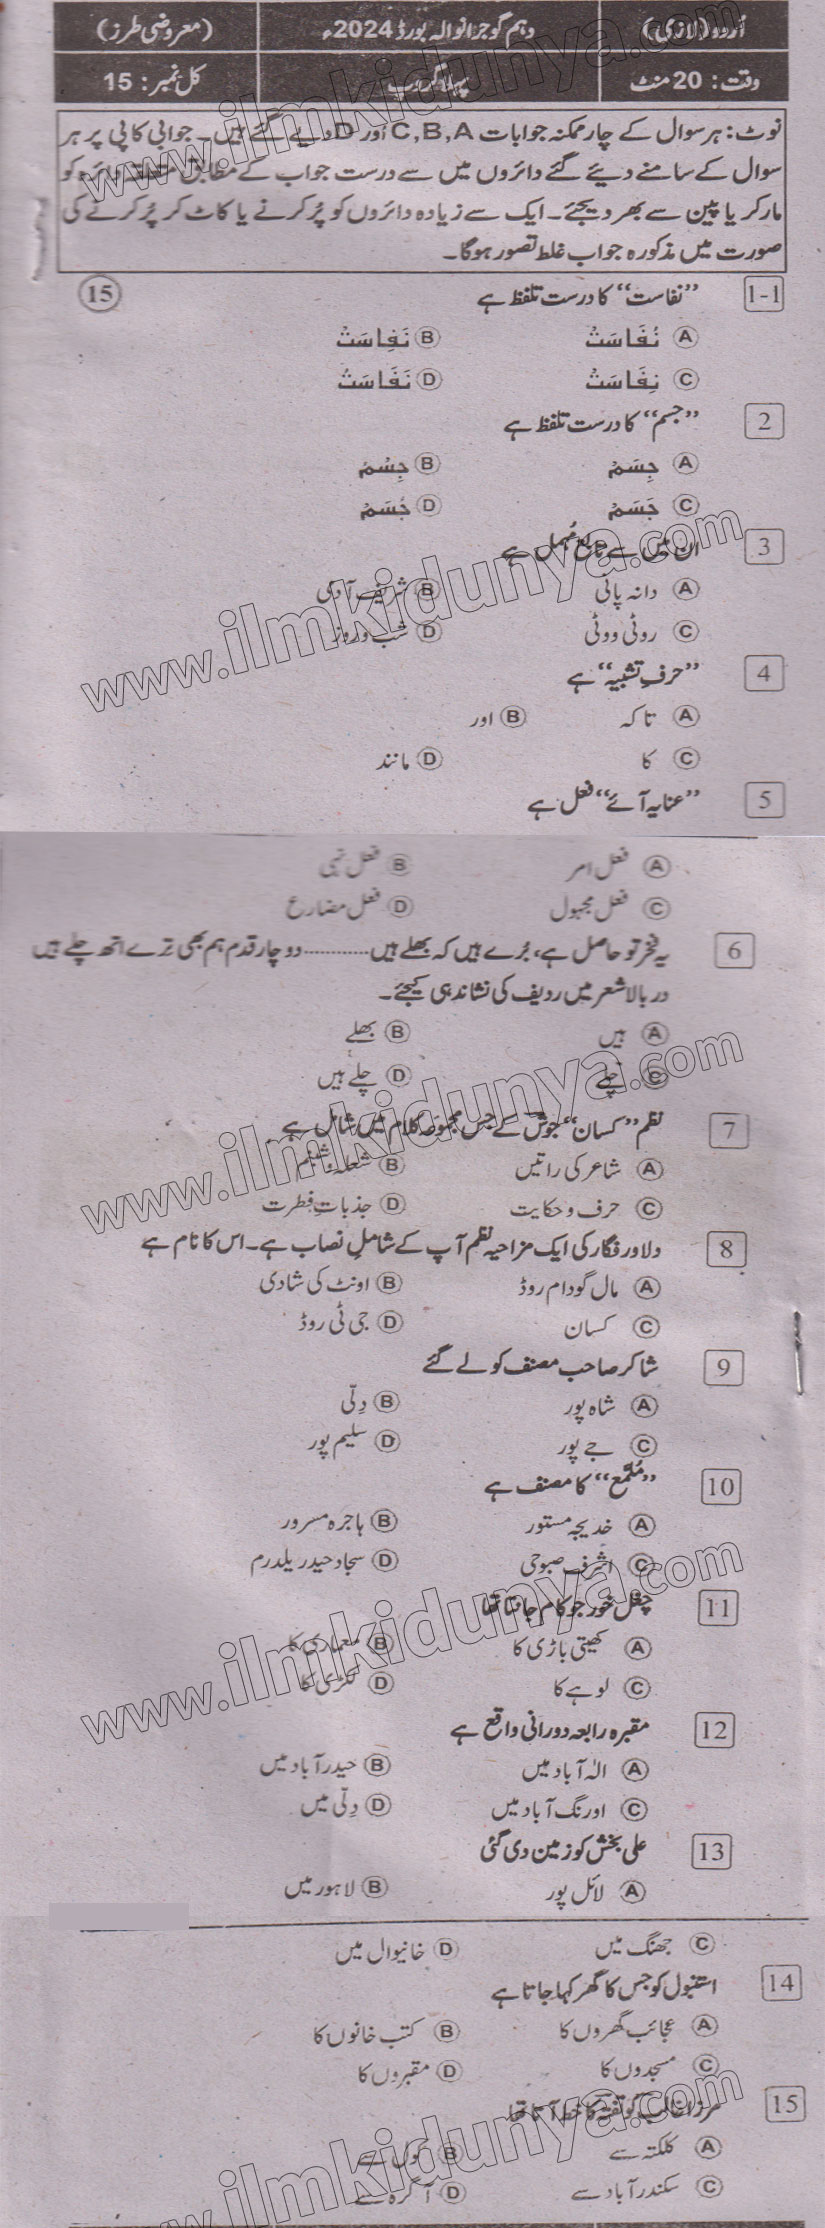 اُردو (لازمی) دہم گوجرانوالہ بورڈ 2024ء (معروضی طرز)
وقت: 20 منٹ پہلا گروپ کل نمبر: 15
نوٹ: ہر سوال کے چار ممکنہ جوابات C,B,A اور D دیے گئے ہیں۔ جوابی کاپی پر ہر
سوال کے سامنے دیئے گئے دائروں میں سے درست جواب کے مطابق متعلقہ دائرہ کو
مارکر یا پین سے بھر دیجئے۔ ایک سے زیادہ دائروں کو پُر کرنے یا کاٹ کر پُر کرنے کی
صورت میں مذکورہ جواب غلط تصور ہوگا۔
1-1 ”نفاست“ کا درست تلفظ ہے 15
A نُفَاسَتْ B نَفِاسَتْ
C نِفَاسَتْ D نَفَاسَتْ
2 ”جسم“ کا درست تلفظ ہے
A جِسَمْ B جِسْمْ
C جَسَمْ D جُسَمْ
3 ان میں سے تابع مُہمل ہے
A دانہ پانی B شریف آدمی
C روٹی ووٹی D شب و روز
4 ”حرفِ تشبیہ“ ہے
A تاکہ B اور
C کا D مانند
5 ”عنایہ آئے“ فعل ہے
A فعل امر B فعل نہی
C فعل مجہول D فعل مضارع
6 یہ فخر تو حاصل ہے، بُرے ہیں کہ بھلے ہیں ............ دو چار قدم ہم بھی ترے ساتھ چلے ہیں
در بالا شعر میں ردیف کی نشاندہی کیجئے۔
A ہیں B بھلے
C چلے D چلے ہیں
7 نظم ”کسان“ جوش کے جس مجموعۂ کلام میں شامل ہے
A شاعر کی راتیں B شعلہ و شبنم
C حرف و حکایت D جذباتِ فطرت
8 دلاور فگار کی ایک مزاحیہ نظم آپ کے شاملِ نصاب ہے۔ اس کا نام ہے
A مال گودام روڈ B اونٹ کی شادی
C کسان D جی ٹی روڈ
9 شاکر صاحب مصنف کو لے گئے
A شاہ پور B دِلّی
C جے پور D سلیم پور
10 ”مُلمّع“ کا مصنف ہے
A خدیجہ مستور B ہاجرہ مسرور
C اشرف صبوحی D سجاد حیدر یلدرم
11 چغل خور جو کام جانتا تھا
A کھیتی باڑی کا B معماری کا
C لوہے کا D لکڑی کا
12 مقبرہ رابعہ دورانی واقع ہے
A الٰہ آباد میں B حیدر آباد میں
C اورنگ آباد میں D دِلّی میں
13 علی بخش کو زمین دی گئی
A لائل پور B لاہور میں
C جھنگ میں D خانیوال میں
14 استنبول کو جس کا گھر کہا جاتا ہے
A عجائب گھروں کا B کتب خانوں کا
C مسجدوں کا D مقبروں کا
15 مرزا غالب کو تفتہ کا خط آتا تھا
A کلکتہ سے B جموں سے
C سکندر آباد سے D آگرہ سے
www.ilmkidunya.com
www.ilmkidunya.com
www.ilmkidunya.com
www.ilmkidunya.com
www.ilmkidunya.com